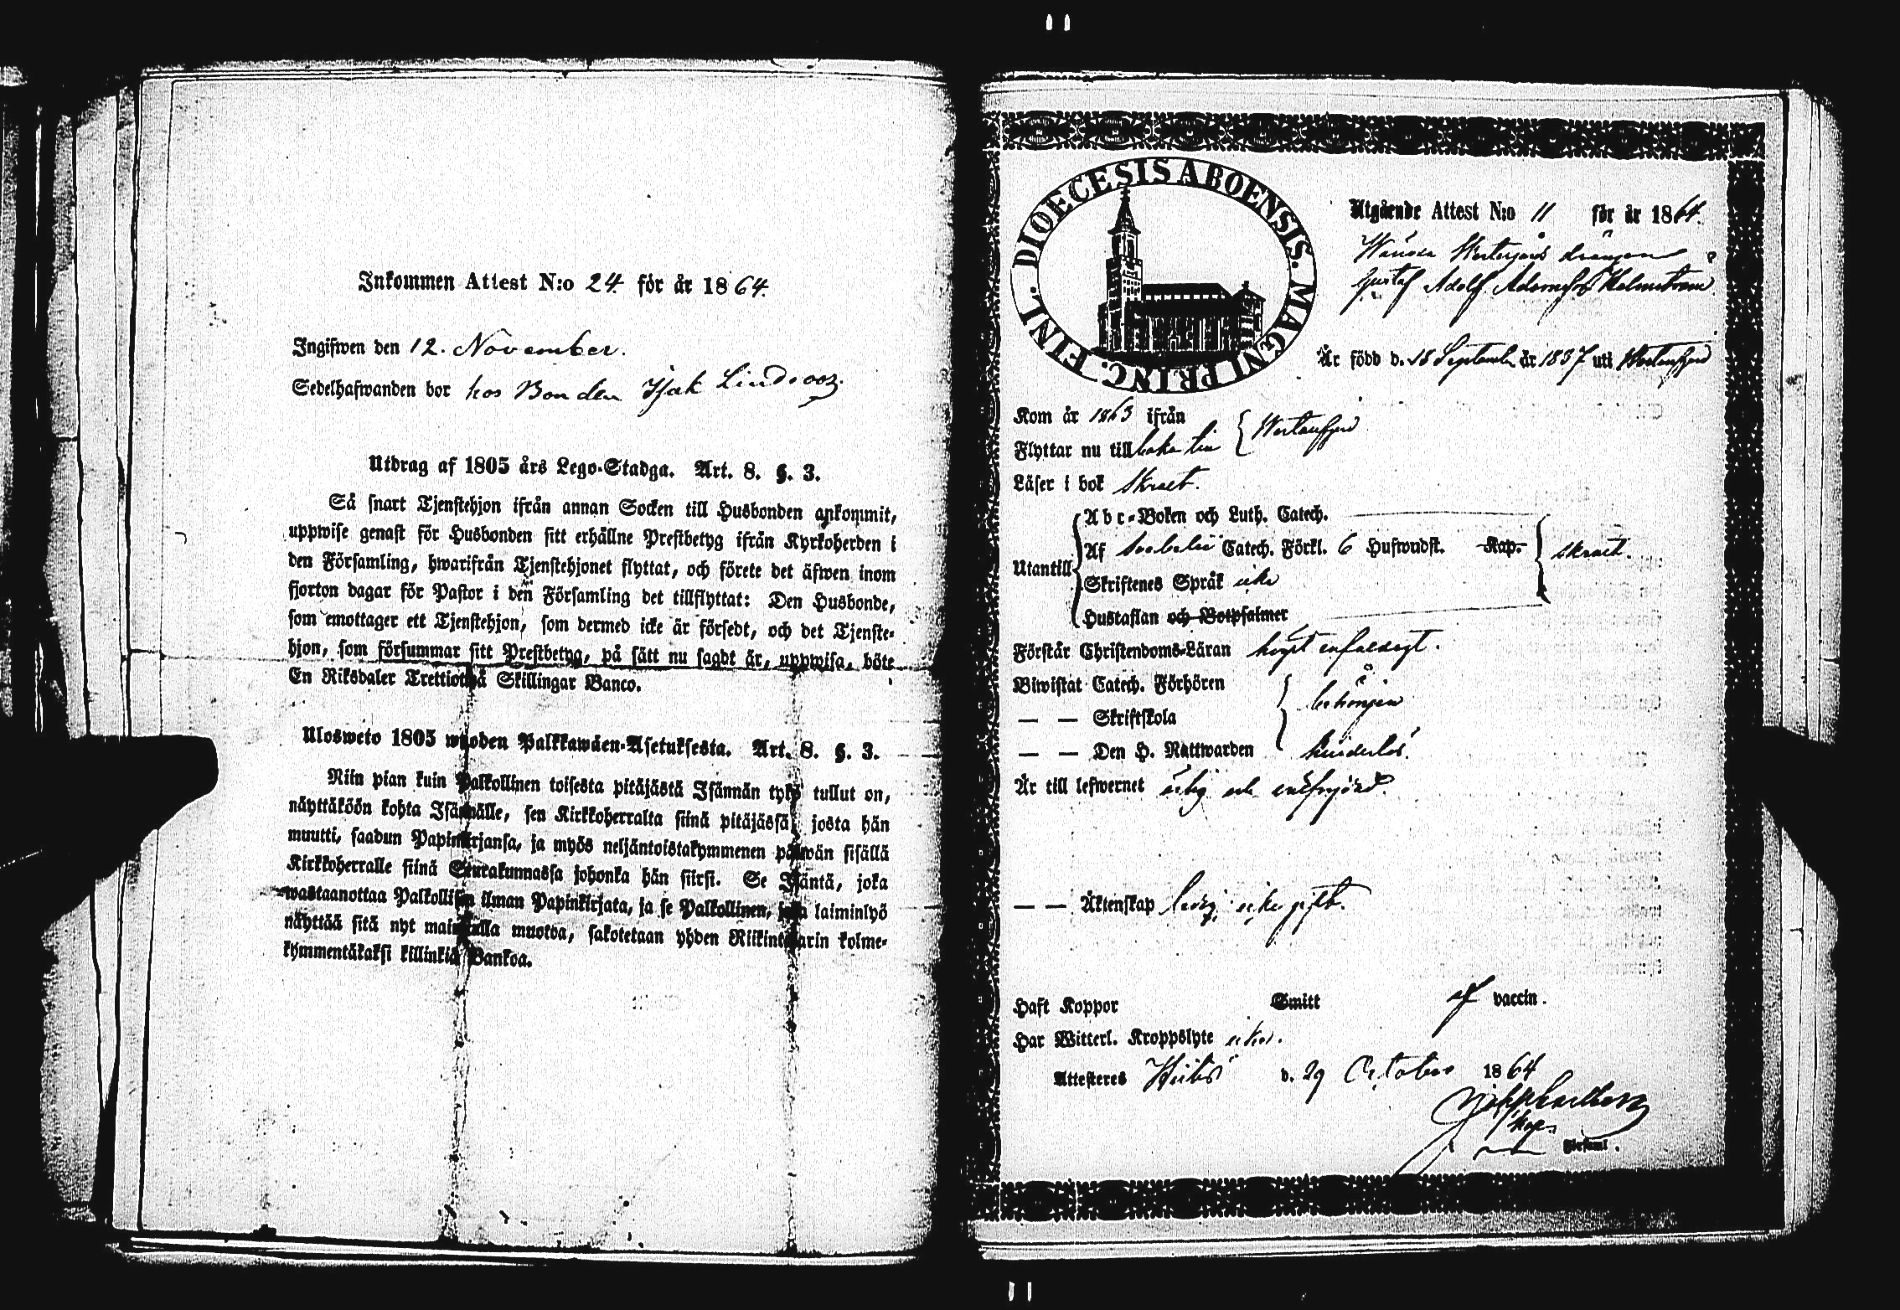 Inkommen Attest N:o 24. för år 1864.
Ingifwen den 12. November.
Sedelhafwanden bor hos Bonden Isak Lindroos.
Utdrag af 1805 års Lego-Stadga. Art. 8. §. 3.
Så snart Tjenstehjon ifrån annan Socken till Husbonden ankommit,
uppwise genast för Husbonden sitt erhållne Prestbetyg ifrån Kyrkoherden i
den Församling, hwarifrån Tjenstehjonet flyttat, och förete det äfwen inom
fjorton dagar för Pastor i den Församling det tillflyttat: Den Husbonde,
som emottager ett Tjenstehjon, som dermed icke är försedt, och det Tjenste-
hjon, som försummar sitt Prestbetyg, på sätt nu sagdt är, uppwisa, böte
En Riksdaler Trettiotwå Skillingar Banco.
Ulosweto 1805 wuoden Palkkawäen-Asetuksesta. Art. 8. §. 3.
Niin pian kuin Palkollinen toisesta pitäjästä Isännän tykö tullut on,
näyttäköön kohta Isännälle, sen Kirkkoherralta siinä pitäjässä, josta hän
muutti, saadun Papinkirjansa, ja myös neljäntoistakymmenen päiwän sisällä
Kirkkoherralle siinä Seurakunnassa johonka hän siirsi. Se Isäntä, joka
wastaanottaa Palkollisen ilman Papinkirjata, ja se Palkollinen, joka laiminlyö
näyttää sitä nyt mainitulla muotoa, sakotetaan yhden Riikintalarin kolme-
kymmentäkaksi killinkiä Bankoa.
DIOECESIS ABOENSIS. MAGNI PRINC. FINL.
Utgående Attest N:o 11 för år 1864.
drängen
Gustaf Adolf Holmström
Är född d. 18 September år 1837 uti
Kom år 1863 ifrån
Flyttar nu till baka till
Läser i bok skract.
Abc-Boken och Luth. Catech.
Af Catech. Förkl. 6 Hufwudst. Kap. skract.
Utantill
Skriftenes Språk icke
Hustaflan och Botpsalmer
Förstår Christendoms-Läran högst enfaldigt.
Biwistat Catech. Förhören
— — Skriftskola
— — Den H. Nattwarden
Är till lefwernet ärlig och
— — Äktenskap ledig icke
Haft Koppor Smitt af vaccin.
Har Witterl. Kroppslyte icke.
Attesteras d. 29 October 1864
Församl.